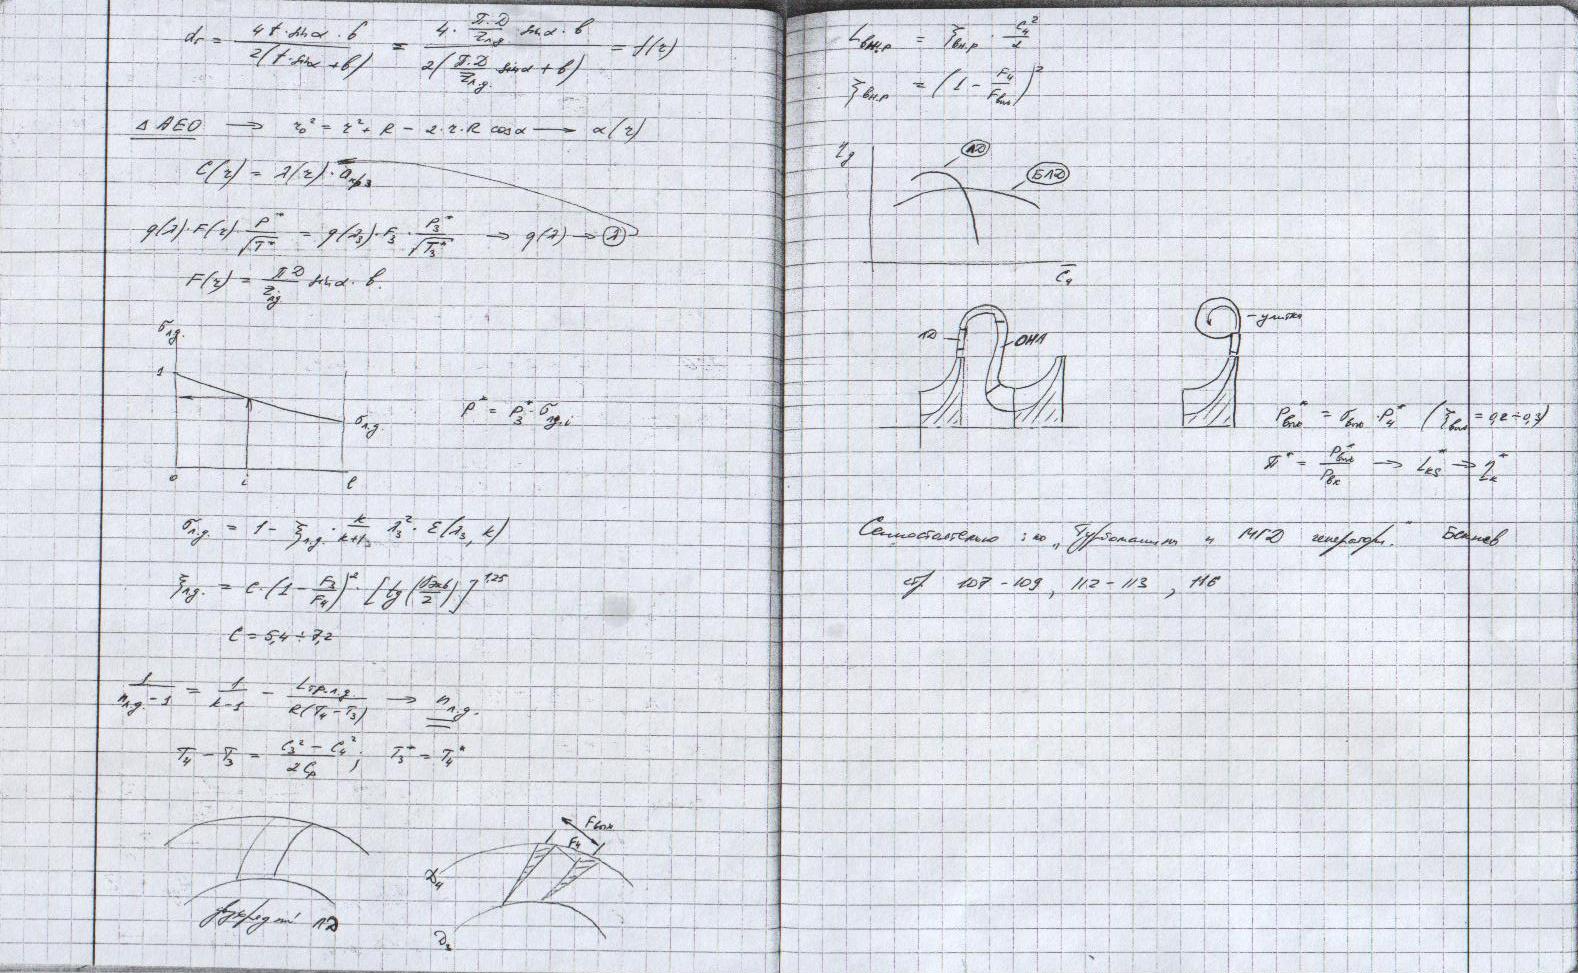 dг = 4t·sinα·b / 2(t·sinα+b) = 4·(П·D/Zл.д)·sinα·b / 2((П·D/Zл.д.) sinα+b) = f(r)
Δ AEO → r₀² = r² + R - 2·r·R cosα → α(r)
C(r) = λ(r)·aкр3
q(λ)·F(r)·P*/√T* = q(λ₃)·F₃·P₃*/√T₃* → q(λ) → λ
F(r) = (πD/Zлд) sinα·b.
σл.д.
1
σл.д.
0 i l
P* = P₃*·σлд.i
σл.д. = 1 - ξл.д.·(k/(k+1))·λ₃²·ε(λ₃, k)
ξл.д. = C·(1 - F₃/F₄)²·[tg(σэкв/2)]^1,25
C = 5,4÷7,2
1/(nл.д.-1) = 1/(k-1) - Lтр.л.д./R(T₄-T₃) → nл.д.
T₄ - T₃ = (C₃² - C₄²)/2Cp ; T₃* = T₄*
двухрядный ЛD
D₄
D₃
Fвых
F₄
Lвн.р = ξвн.р·C₄²/2
ξвн.р = (1 - F₄/Fвых)²
ηд
ЛD
БЛD
C̄₄
ЛD
ОНА
улитка
Pвых* = σвых·P₄* (ξвых = 0,2÷0,3)
π* = Pвых*/Pвх → Lкs* → ηк*
Самостоятельно : по „Турбомашины и МГД генераторы."
стр 107-109, 112-113, 116